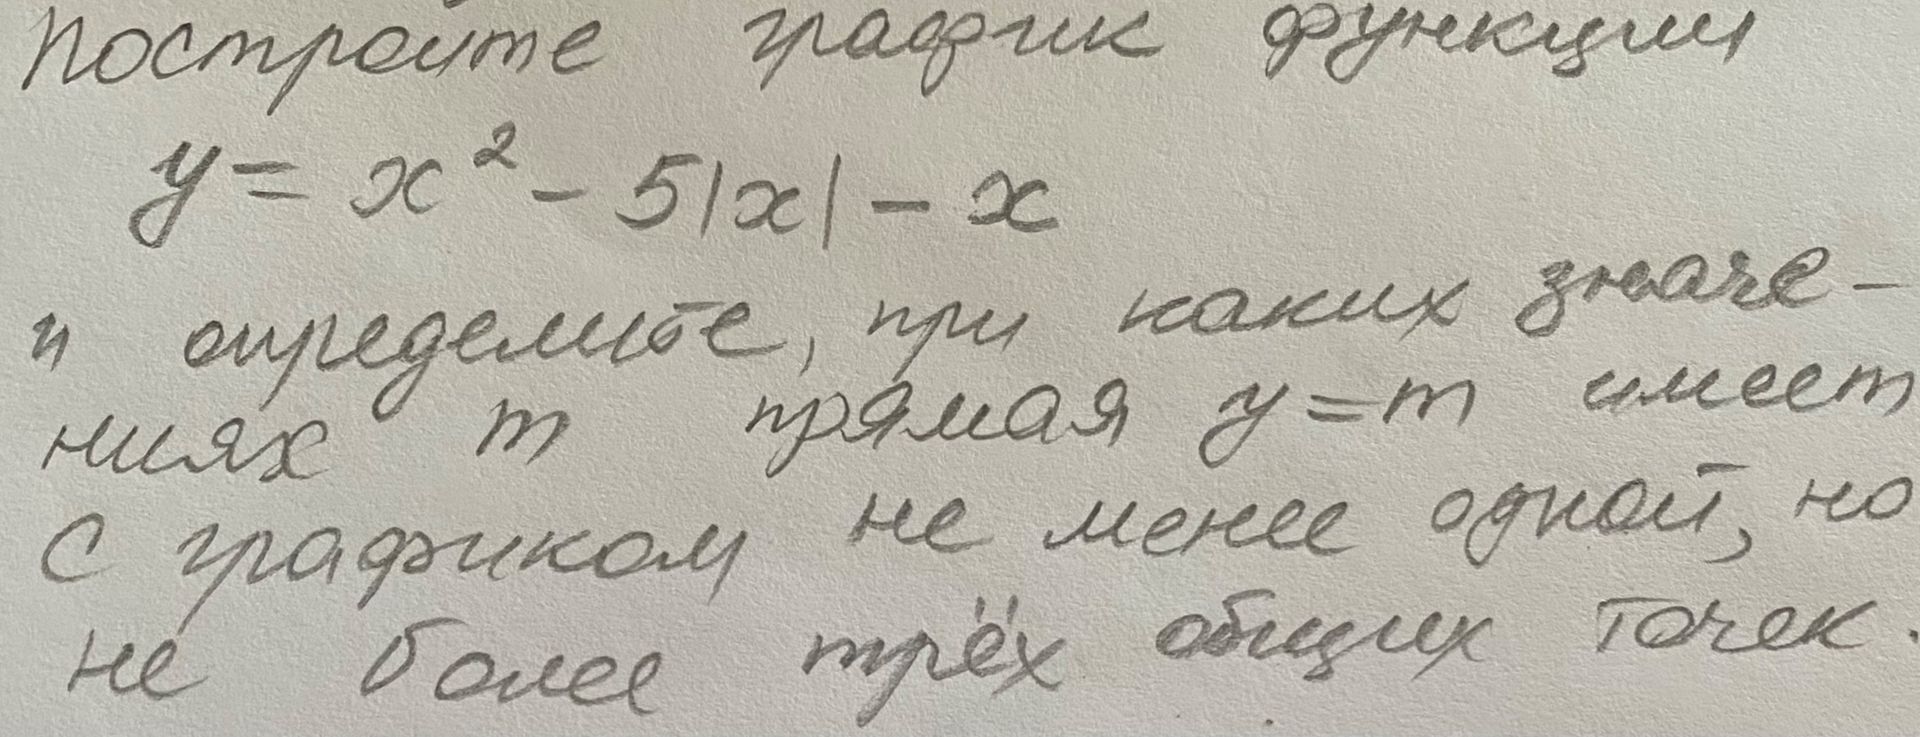 Постройте график функции
y = x² - 5|x| - x
и определите, при каких значе-
ниях m прямая y=m имеет
с графиком не менее одной, но
не более трёх общих точек.